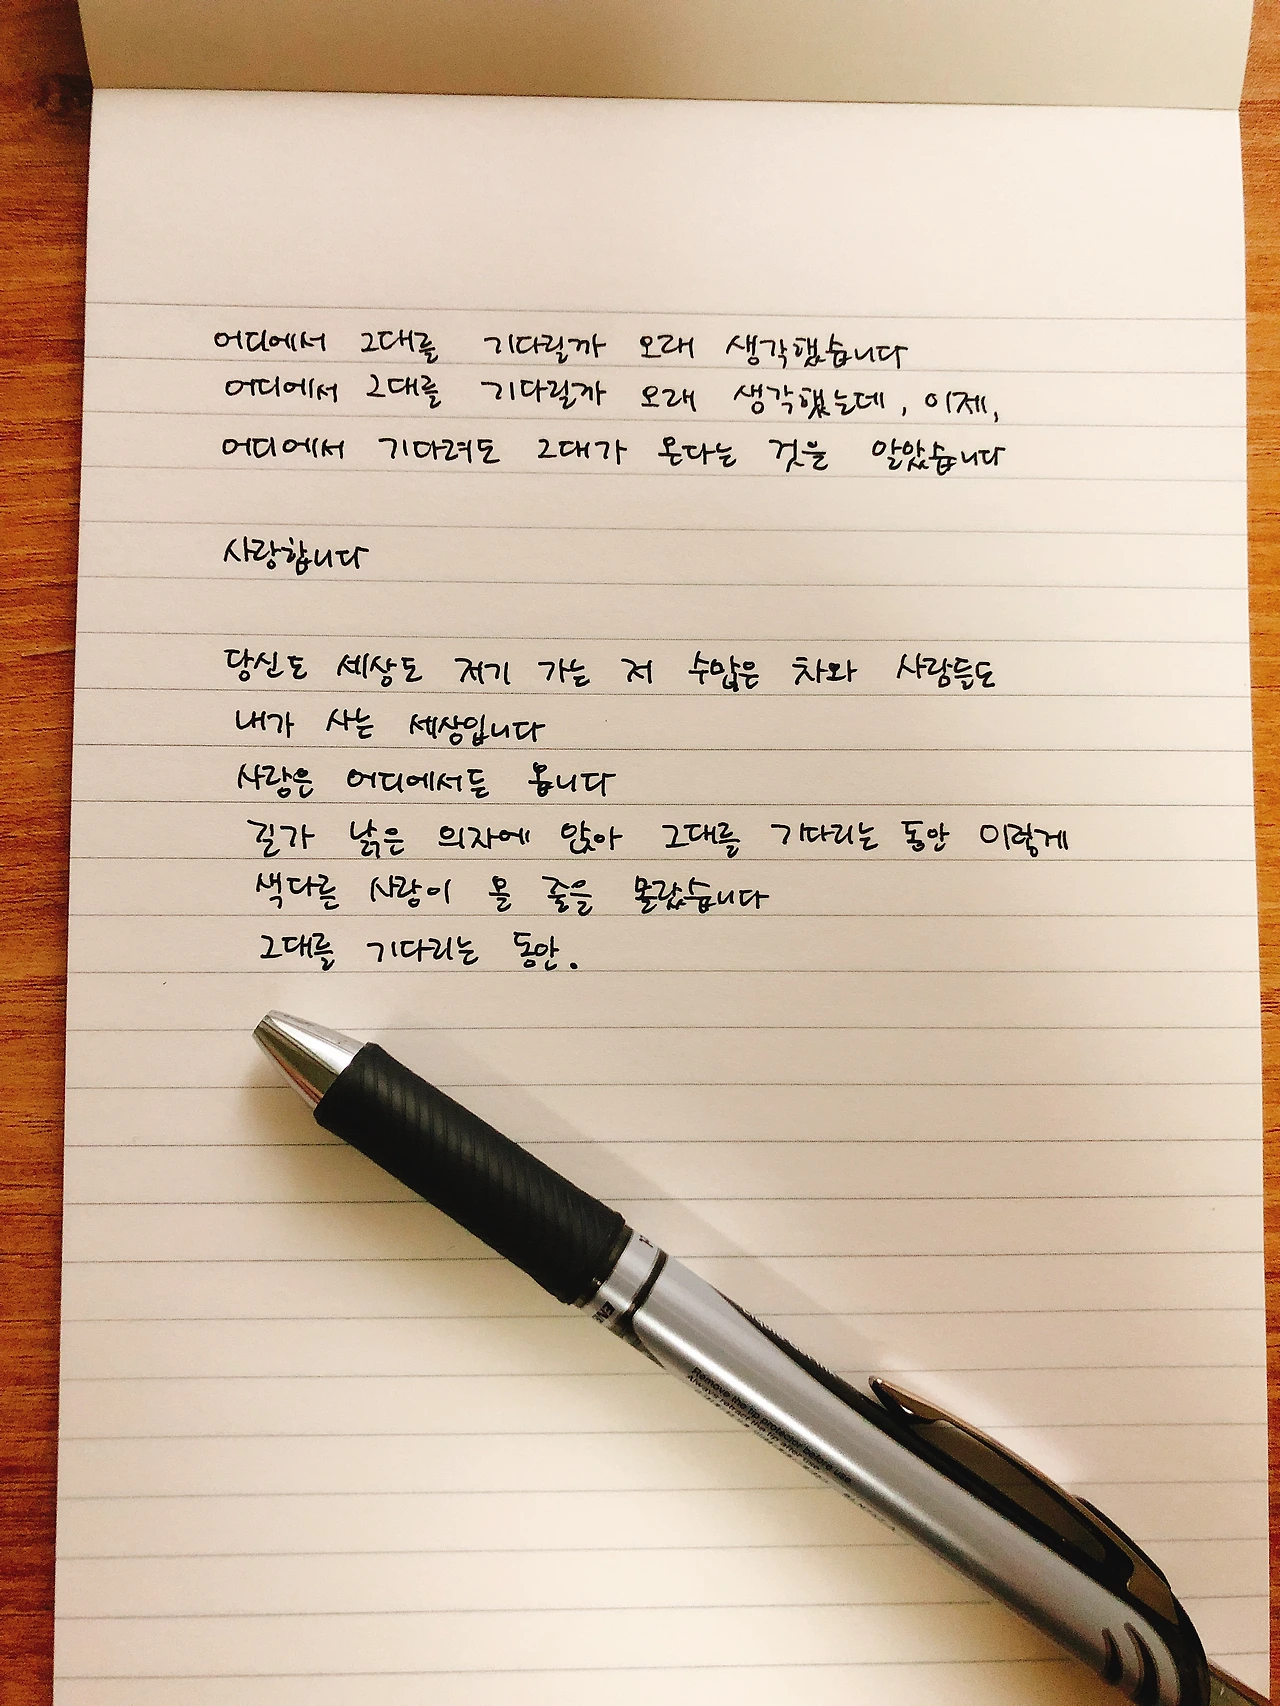 어디에서 그대를 기다릴까 오래 생각했습니다
어디에서 그대를 기다릴까 오래 생각했는데, 이제,
어디에서 기다려도 그대가 온다는 것을 알았습니다
사랑합니다
당신도 세상도 저기 가는 저 수많은 차와 사람들도
내가 사는 세상입니다
사랑은 어디에서든 옵니다
길가 낡은 의자에 앉아 그대를 기다리는 동안 이렇게
색다른 사랑이 올 줄을 몰랐습니다
그대를 기다리는 동안.
Remove the tip protector before use.
Always retract the tip after use.